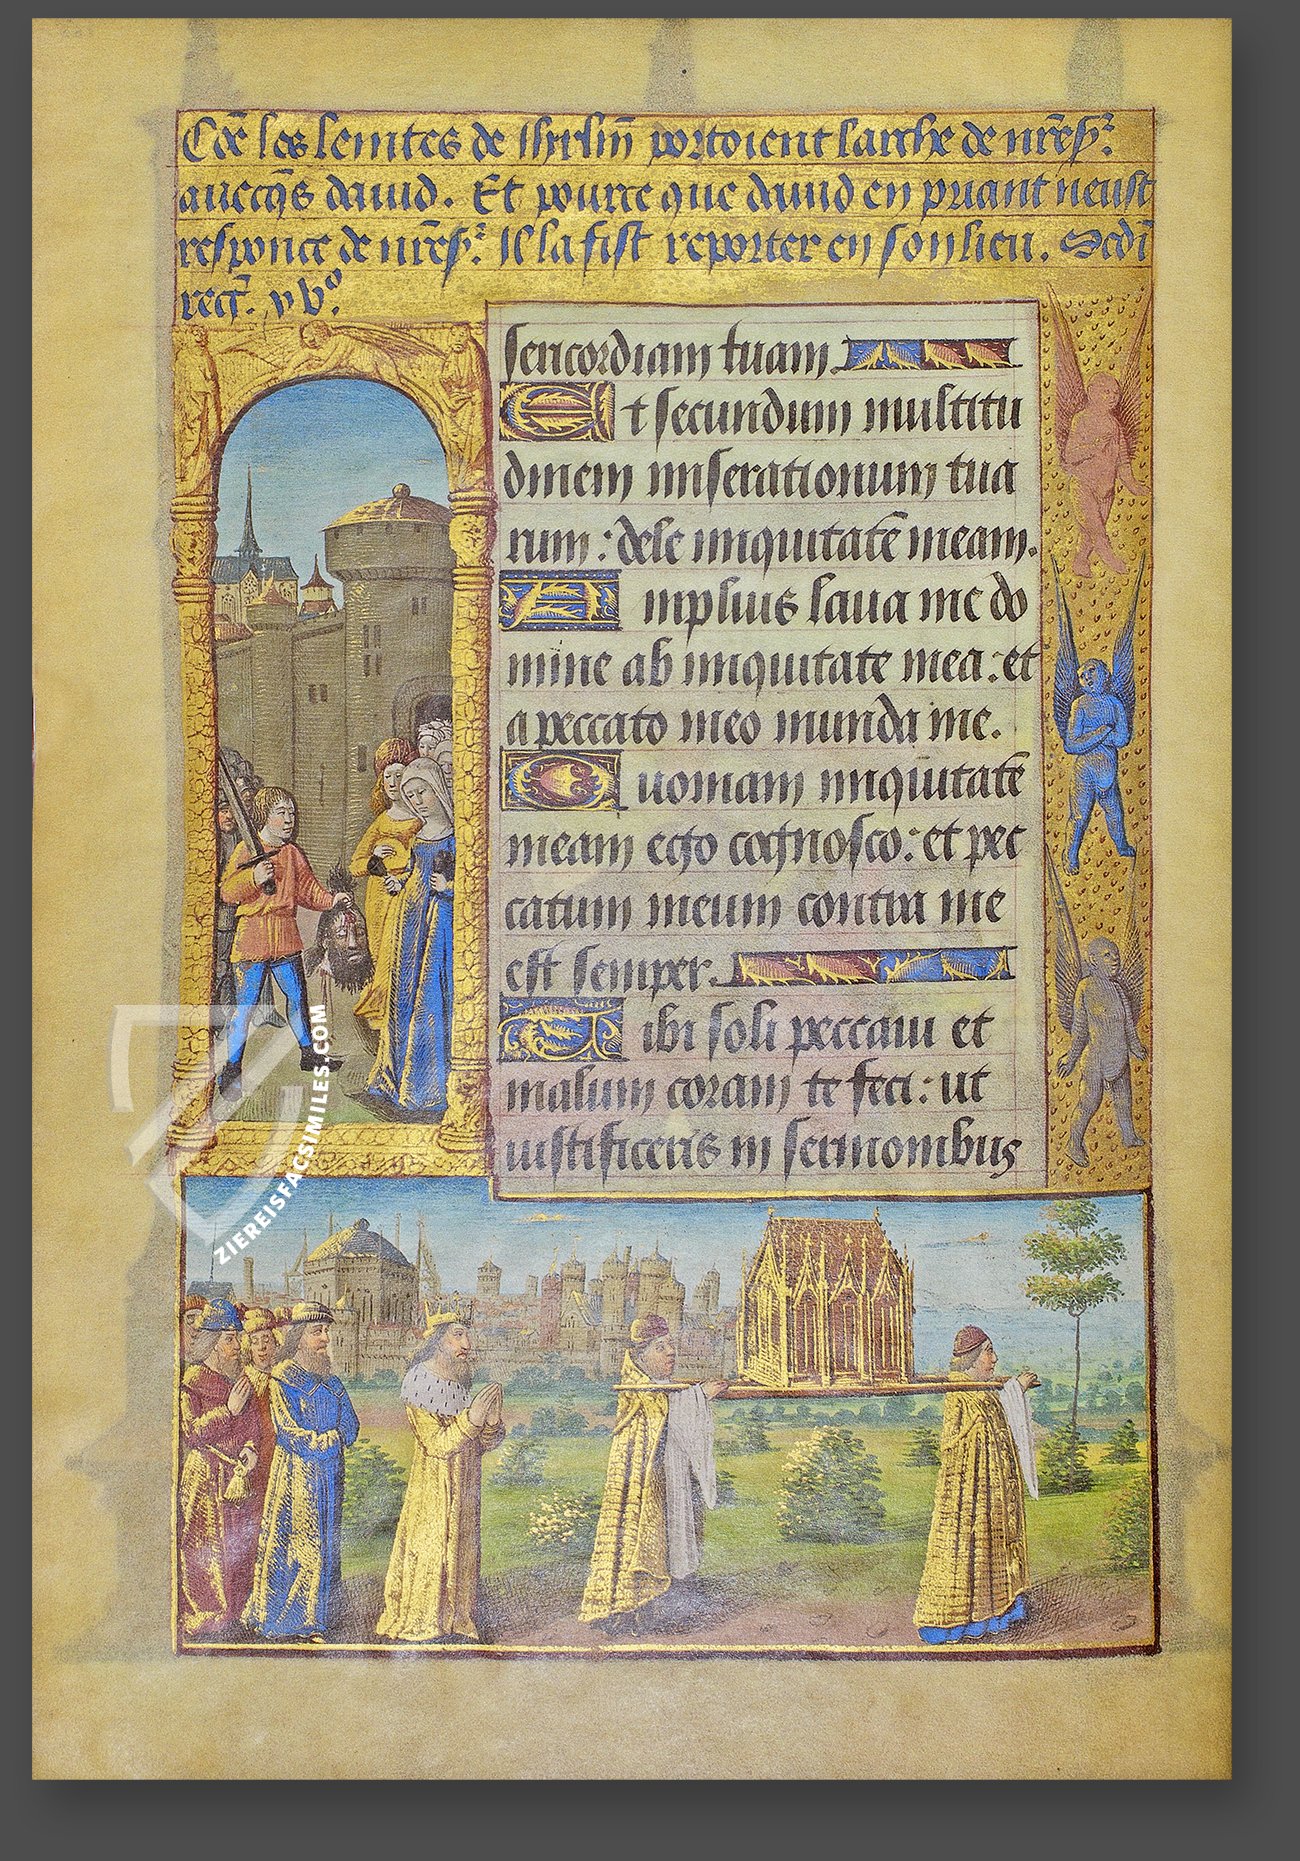 Cōe les leuites de Ihrlm̄ portoient larche de nr̄es.ʳ
auecq̄s dauid. Et pource que dauid en priant neust
responce de nr̄es.ʳ Il la fist reporter en son lieu. Sedi
reg. xvº.
sericordiam tuam.
Et secundum multitu
dinem miserationum tua
rum: dele iniquitatē meam.
Amplius laua me do
mine ab iniquitate mea: et
a peccato meo munda me.
Quoniam iniquitatē
meam ego cognosco: et pec
catum meum contra me
est semper.
Tibi soli peccaui et
malum coram te feci: ut
iustificeris in sermonibus
ZIEREISFACSIMILES.COM